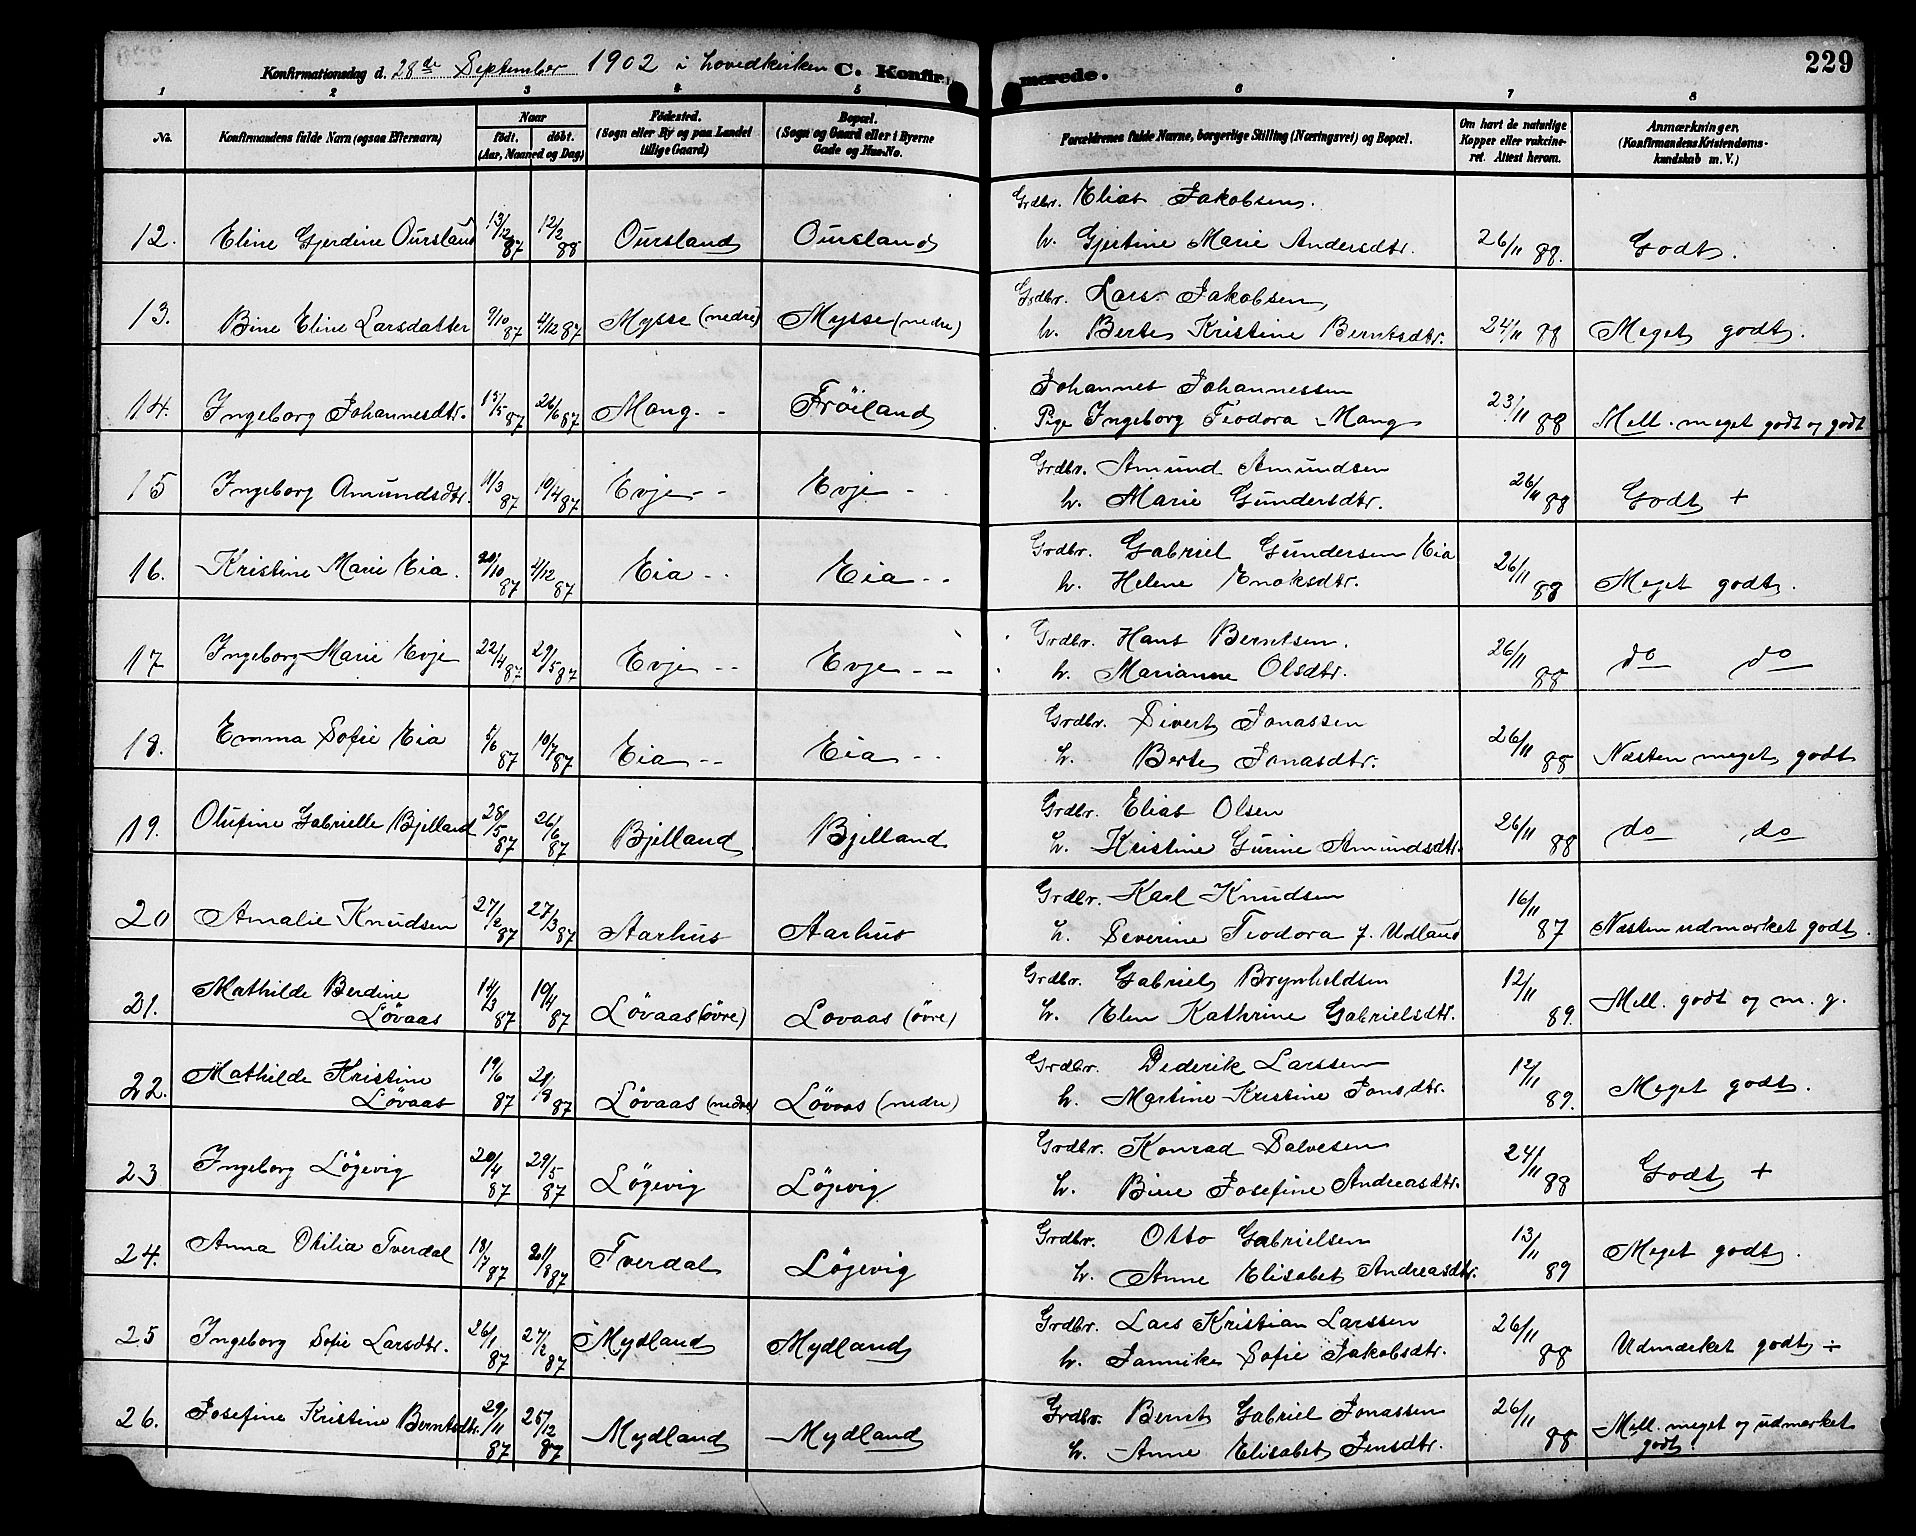 Konfirmationsdag d. 28de September 1902 i hovedkirken C. Konfirmerede. 229
1 2 3 4 5 6 7 8
No. Konfirmandens fulde Navn (ogsaa Efternavn) Naar født. døbt. (Aar, Maaned og Dag) Fødested. (Sogn eller By og paa Landet tillige Gaard) Bopæl. (Sogn og Gaard eller i Byerne Gade og Hus-No. Forældrenes fulde Navne, borgerlige Stilling (Næringsvei) og Bopæl. Om havt de naturlige Kopper eller vaccineret. Attest herom. Anmærkninger. (Konfirmandens Kristendomskundskab m. V.)
12. Eline Gjerdine Oursland 13/12 87 12/2 88 Oursland Oursland Grdbr. Elias Jakobsen.
h. Gjertine Marie Andersdtr. 26/11 88. Godt.
13. Bine Eline Larsdatter 9/10 87 4/12 87 Mysse (nedre) Mysse (nedre) Grdbr. Lars Jakobsen,
h. Berte Kristine Berntsdtr. 24/11 88 Meget godt.
14. Ingeborg Johannesdtr. 15/5 87 26/6 87 Mong - Fröiland Johannes Johannessen
Pige Ingeborg Teodora Mong 23/11 88 Mell. meget godt og godt
15 Ingeborg Amundsdtr. 11/3 87 10/4 87 Evje - - Evje - Grdbr. Amund Amundsen
h. Marie Gundersdtr. 26/11 88 Godt +
16. Kristine Marie Eia. 20/10 87 4/12 87 Eia - - Eia - - Grdbr. Gabriel Gundersen Eia
h. Helene Enoksdtr. 26/11 88 Meget godt.
17 Ingeborg Marie Evje 22/4 87 29/5 87 Evje - - Evje - - Grdbr. Hans Berntsen.
h. Marianne Olsdtr. 26/11 88 do do
18. Emma Sofie Eia 5/6 87 10/7 87 Eia - - Eia - - Grdbr. Sivert Jonassen
h. Berte Jonasdtr. 26/11 88 Næsten meget godt
19. Olufine Gabrielle Bjelland 28/5 87 26/6 87 Bjelland Bjelland Grdbr. Elias Olsen
h. Kristine Gurine Amundsdtr. 26/11 88 do do
20 Amalie Knudsen 27/2 87 27/3 87 Aarhus Aarhus Grdbr. Karl Knudsen
h. Severine Teodora f. Udland 16/11 87 Næsten udmærket godt.
21. Mathilde Berdine Løvaas 14/3 87 10/4 87 Løvaas (øvre) Løvaas (øvre) Grdbr. Gabriel Brynheldsen
h. Elen Kathrine Gabrielsdtr. 12/11 89. Mell. godt og m. g.
22. Mathilde Kristine Løvaas 19/6 87 21/8 87 Løvaas (nedre) Løvaas (nedre) Grdbr. Dederik Larssen
h. Martine Kristine Jonsdtr. 12/11 89. Meget godt.
23 Ingeborg Løgevig 20/4 87 29/5 87 Løgevig Løgevig Grdbr. Konrad Salvesen
h. Bine Josefine Andreasdtr. 24/11 88 Godt +
24. Anna Othilia Tverdal 18/7 87 21/8 87 Tverdal Løgevig Grdbr. Otto Gabrielsen
h. Anne Elisabet Andreasdtr. 13/11 89 Meget godt.
25 Ingeborg Sofie Larsdtr. 26/1 87 27/2 87 Mydland Mydland Grdbr. Lars Kristian Larssen
h. Jannike Sofie Jakobsdtr. 26/11 88 Udmærket godt ÷
26. Josefine Kristine Berntsdtr. 29/11 87 25/12 87 Mydland Mydland Grdbr. Bernt Gabriel Jonassen
h. Anne Elisabet Jensdtr. 26/11 88 Mell. meget og udmærket godt